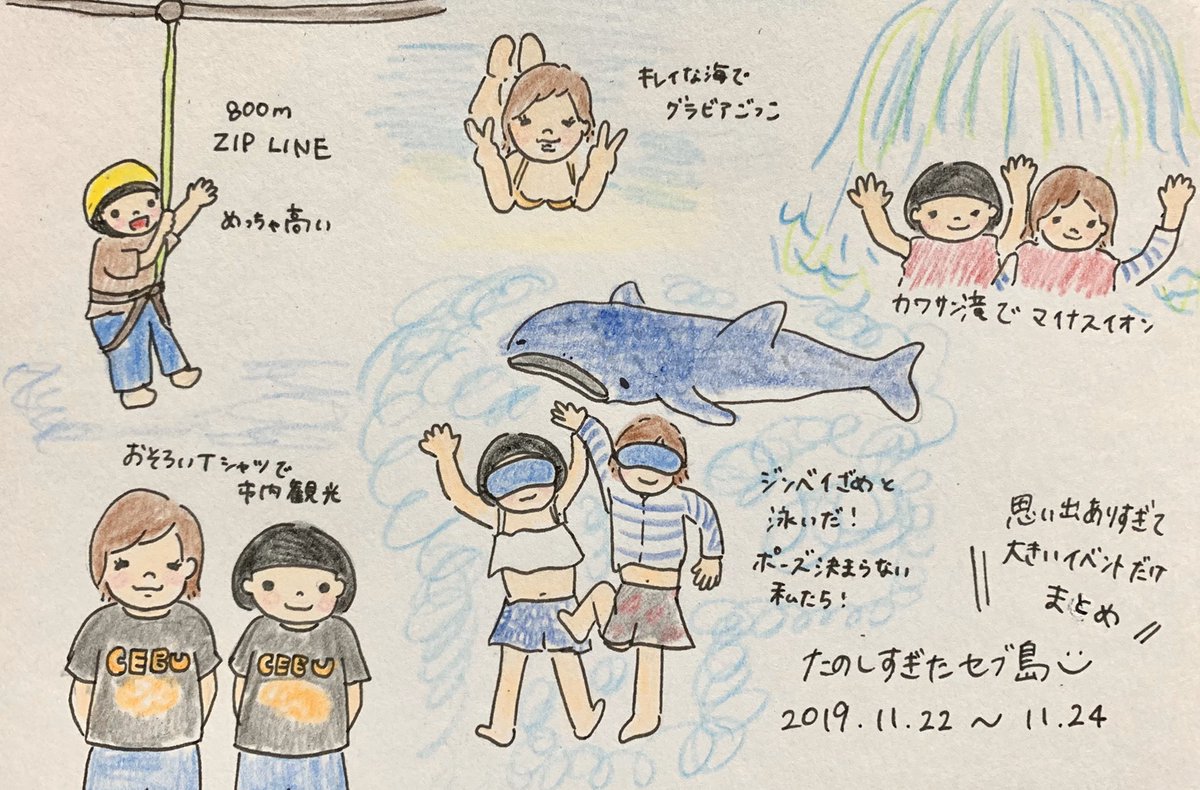 800m
ZIP LINE
めっちゃ高い
キレイな海で
グラビアごっこ
カワサン滝でマイナスイオン
おそろいTシャツで
市内観光
CEBU
CEBU
ジンベイざめと
泳いだ!
ポーズ決まらない
私たち!
思い出ありすぎて
大きいイベントだけ
まとめ
たのしすぎたセブ島
2019.11.22〜11.24